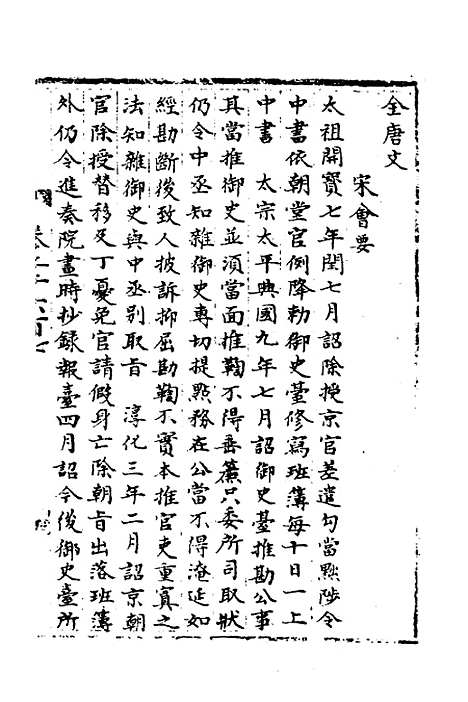 全唐文
宋會要
太祖開寶七年閏七月詔除授京官差遣勾當㸃陟令
中書依朝堂官例降勅御史臺修寫班簿每十日一上
中書　太宗太平興國九年七月詔御史臺推勘公事
其當推御史並須當面推鞫不得垂簾只委所司取狀
仍令中丞知雜御史專切提㸃務在公當不得淹延如
經勘斷後致人披訴抑屈勘鞫不實本推官吏重寘之
法知雜御史與中丞别取旨　淳化三年二月詔京朝
官除授替移及丁憂免官請假身亡除朝旨出落班簿
外仍令進奏院畫時抄録報臺四月詔令後御史臺所